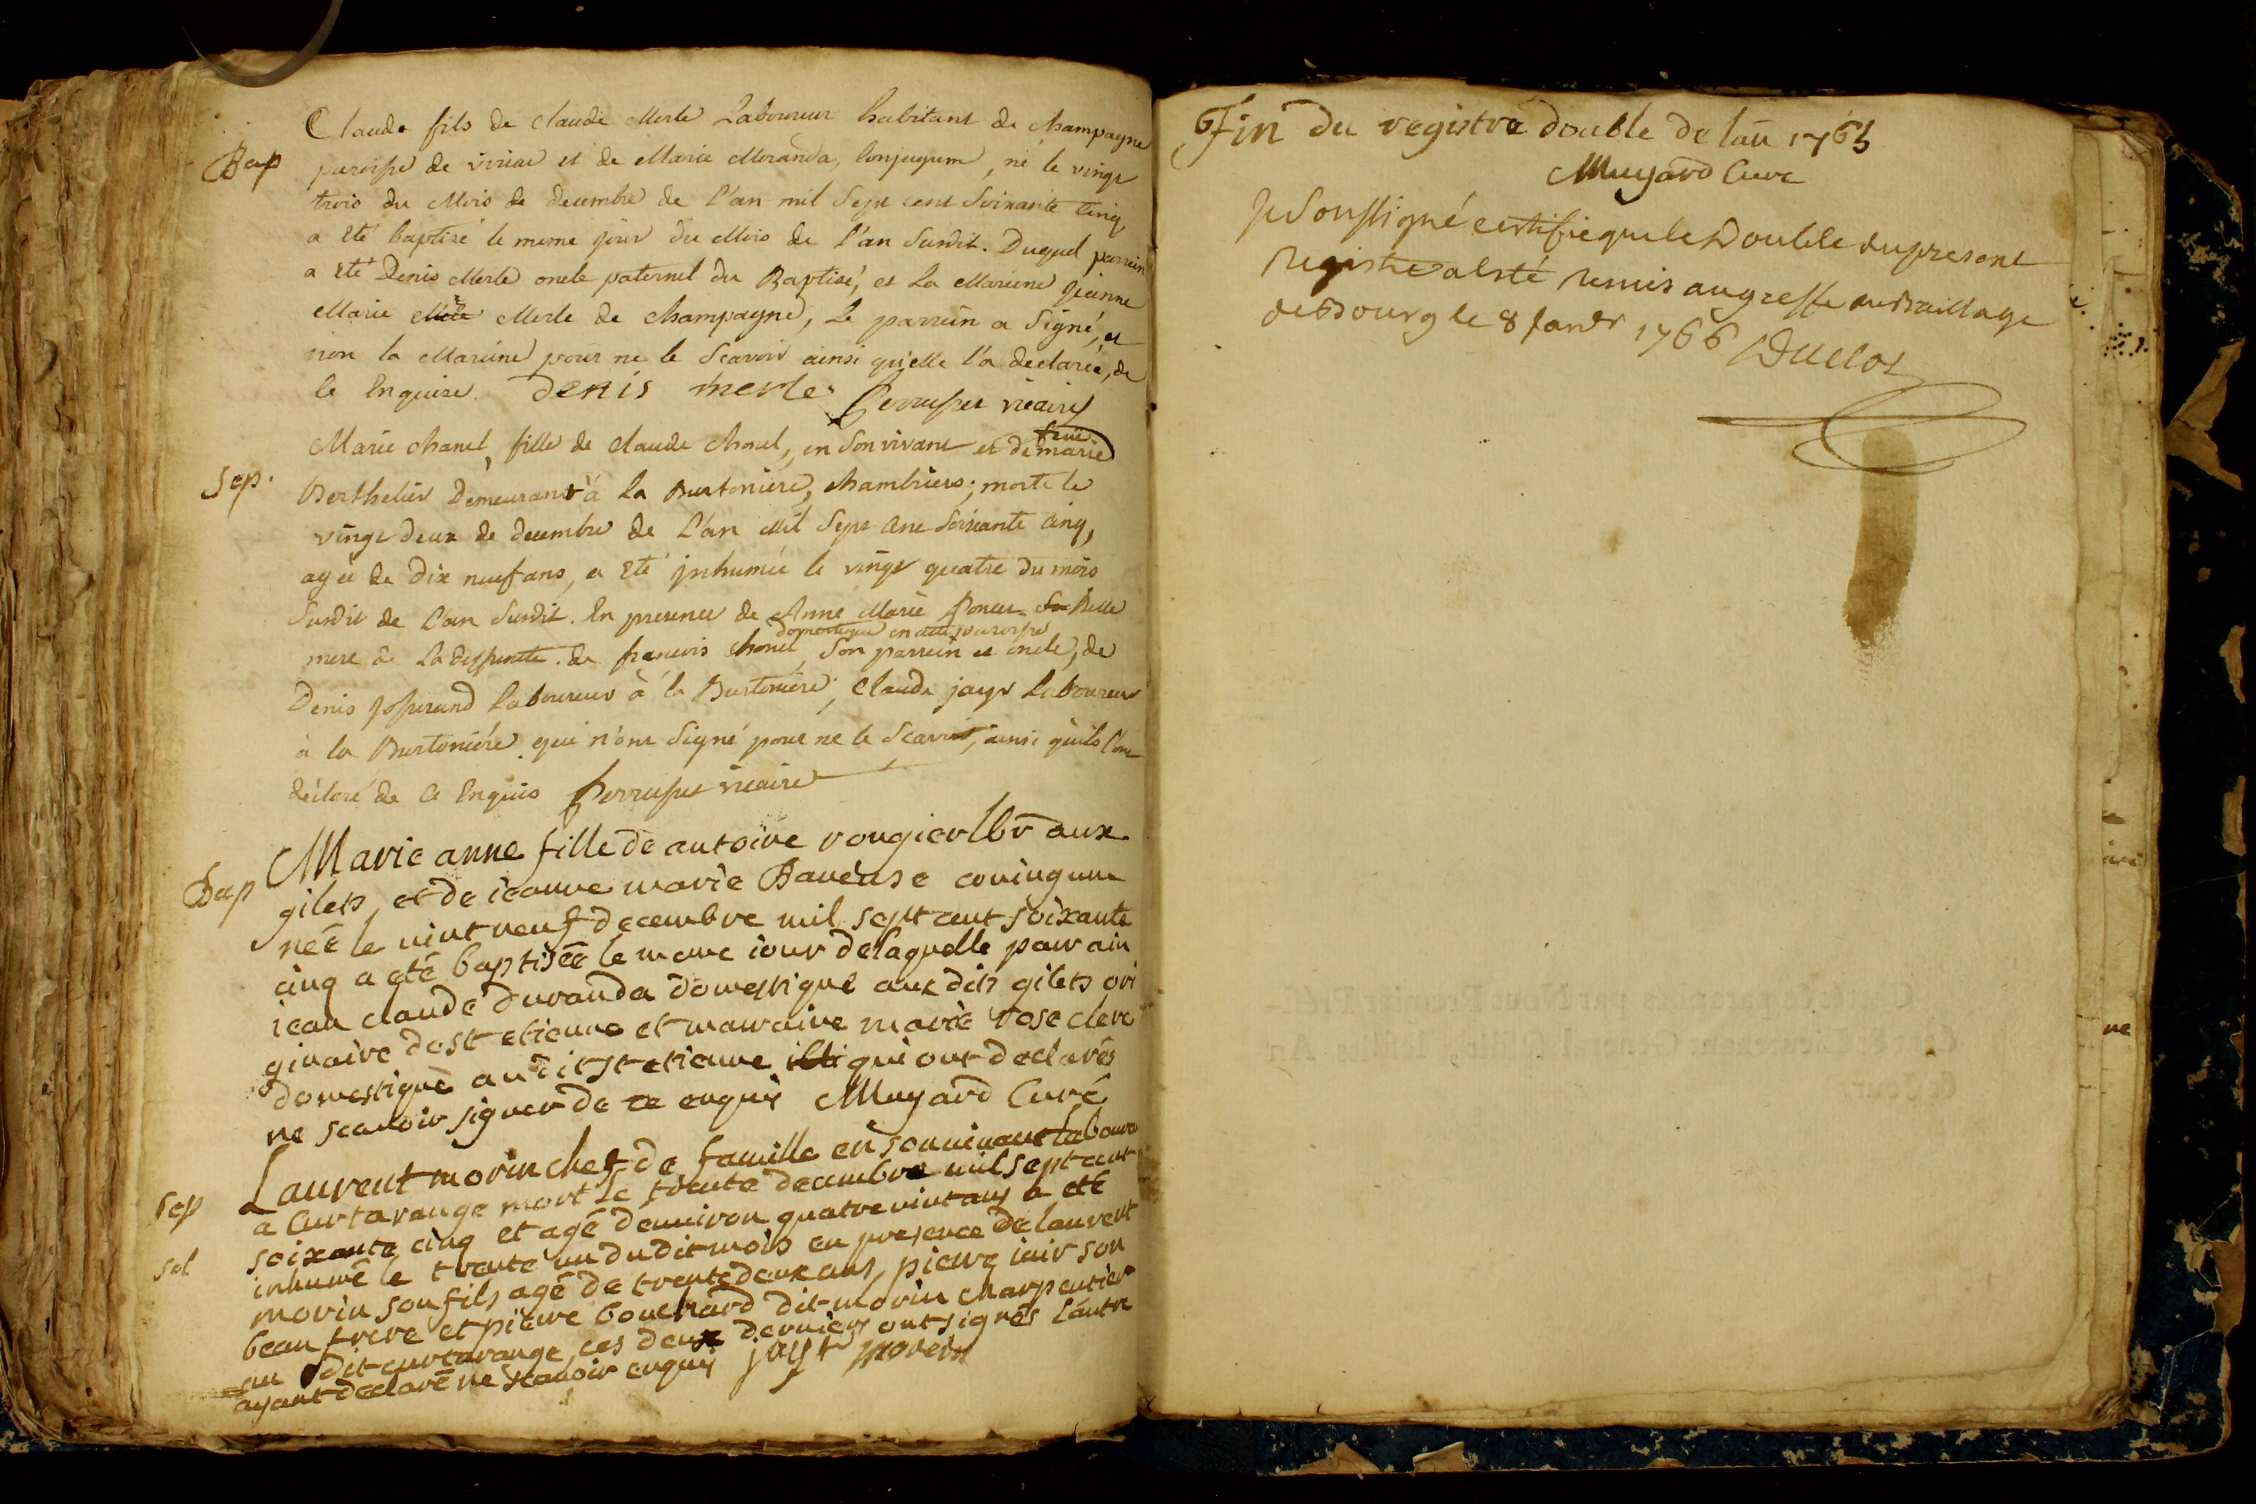 Claude fils de claude Merle Laboureur habitant de champagne
Bap
paroisse de viriac et de Marie Moranda, Conjugum, né le vingt
trois du Mois de decembre de l'an mil Sept cent Soixante Cinq
a Eté baptisé le meme jour du Mois de l'an Susdit. Duquel parrein
a Eté Denis Merle oncle paternel du Baptisé, et La Mareine Jeanne
Marie Merle de champagne, Le parrein a Signé, et
non la Mareine pour ne le Scavoir ainsi qu'elle l'a declarée, de
ce Enquise. Denis merle vicaire
Marie chanel, fille de claude chonel, en Son vivant et de feüe marie
Sep.
Berthelier Demeurant à La Burtoniere, chambriere; morte le
vingt deux de decembre de L'an Mil Sept Cent Soixante Cinq,
agée de Dix neuf ans, a Eté jnhumée le vingt quatre du mois
Susdit de L'an Susdit. En presence de Anne Marie Poncet Sa Belle
domestique en cette paroisse
mere de La deffunte. de francois chonel, Son parrein et oncle, de
Denis Josserand Laboureur à la Burtoniére, Claude jayr Laboureur
à la Burtoniére qui n'ont Signé pour ne le Scavoir, ainsi qu'ils l'ont
déclaré de Ce Enquis vicaire
Marie anne fille de antoine rougier lbr aux
Bap
gilets, et de ieanne marie Baveuse coniugum
néé le vint neuf decembre mil sept cent soixante
cinq a eté baptiséé le meme iour de laquelle parrain
iean claude duranda domestique aux dits gilets ori
ginaire de st etienne et marraine marie rose clerc
domestique au dit st etienne qui ont declarés
ne scavoir signer de ce enquis Muyard Curé
Laurent morin chef de famille en son vivant labour
Sep
a Curtarange mort le trente decembre mil sept cent
sol
soixante cinq et agé denviron quatre vint ans a eté
inhumé le trente un du dit mois en presence de laurent
morin son fils agé de trente deux ans, pierre iair son
beau frere et pierre bouchard dit morin charpentier
au dit curtarange ces deux derniers ont signés lautre
ayant declaré ne scavoir enquis jayr morein
Fin du registre double de lan 1765
Muyard Curé
Je Soussigné certifie que le Double du present
Registre a esté remis au greffe du Bailliage
de Bourg le 8 Janvr 1766 Duclos